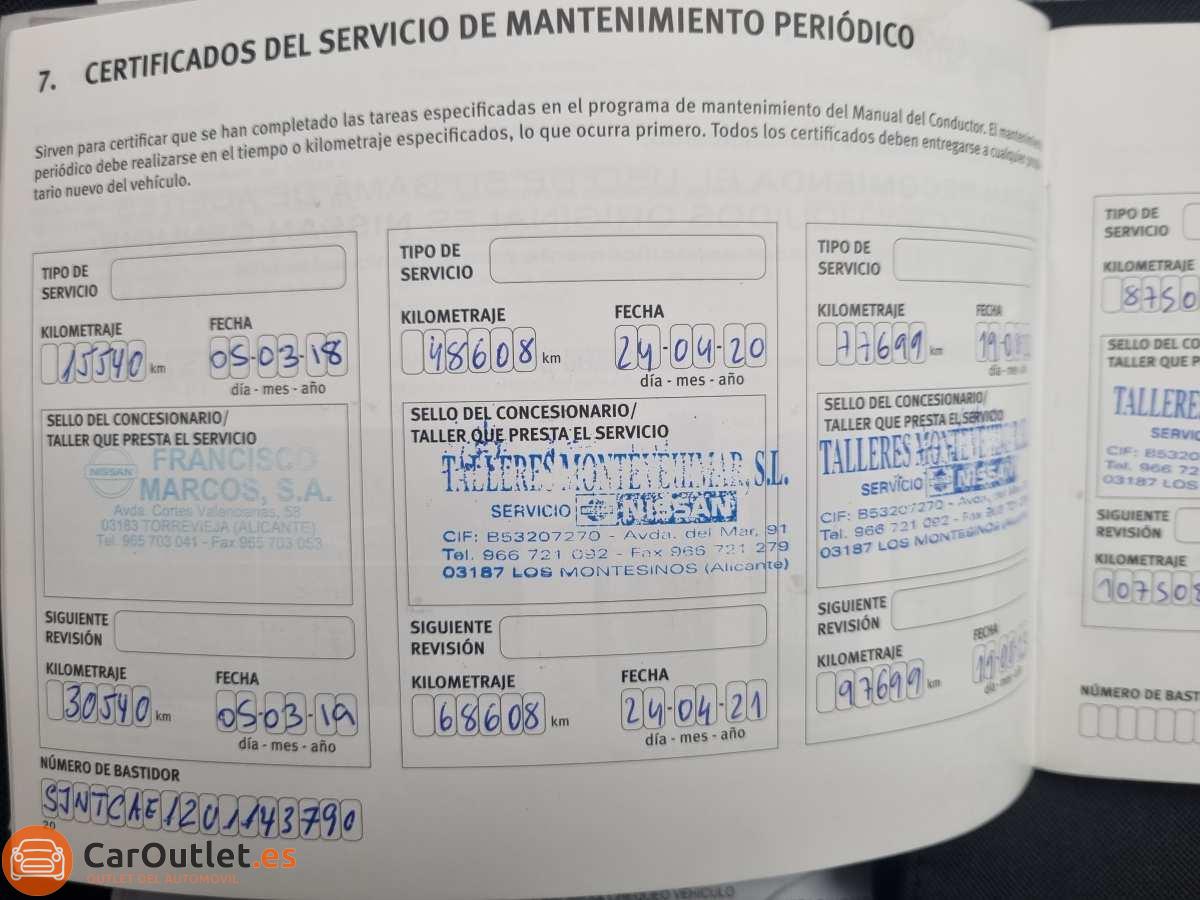 7. CERTIFICADOS DEL SERVICIO DE MANTENIMIENTO PERIÓDICO
Sirven para certificar que se han completado las tareas especificadas en el programa de mantenimiento del Manual del Conductor. El
periódico debe realizarse en el tiempo o kilometraje especificados, lo que ocurra primero. Todos los certificados deben entregarse a cualquier
tario nuevo del vehículo.
TIPO DE
SERVICIO
KILOMETRAJE
FECHA
15540 km
05-03-18
día - mes - año
SELLO DEL CONCESIONARIO/
TALLER QUE PRESTA EL SERVICIO
NISSAN
FRANCISCO
MARCOS, S.A.
Avda. Cortes Valencianas, 58
03183 TORREVIEJA (ALICANTE)
Tel. 965 703 041 - Fax 965 703 053
SIGUIENTE
REVISIÓN
KILOMETRAJE
FECHA
30540 km
05-03-19
día - mes - año
NÚMERO DE BASTIDOR
SJNTCAE12U1143790
20
TIPO DE
SERVICIO
KILOMETRAJE
FECHA
48608 km
24-04-20
día - mes - año
SELLO DEL CONCESIONARIO/
TALLER QUE PRESTA EL SERVICIO
TALLERES MONTEVEHIMAR, S.L.
SERVICIO NISSAN
CIF: B53207270 - Avda. del Mar, 91
Tel. 966 721 092 - Fax 966 721 279
03187 LOS MONTESINOS (Alicante)
SIGUIENTE
REVISIÓN
KILOMETRAJE
FECHA
68608 km
24-04-21
día - mes - año
TIPO DE
SERVICIO
KILOMETRAJE
FECHA
77699 km
día - mes
SELLO DEL CONCESIONARIO/
TALLER QUE PRESTA EL SERVICIO
TALLERES
SERVICIO NISSAN
CIF: B53207270 - Avda. del
Tel. 966 721 092 - Fax 966
03187 LOS MONTESINOS
SIGUIENTE
REVISIÓN
KILOMETRAJE
FECHA
97699 km
TIPO DE
SERVICIO
KILOMETRAJE
8750
SELLO DEL CO
TALLER QUE P
TALLERE
SERVIC
CIF: B5320
Tel. 966 72
03187 LOS
SIGUIENTE
REVISIÓN
KILOMETRAJE
10750
NÚMERO DE BAST
CarOutlet.es
OUTLET DEL AUTOMOVIL
VEHÍCULO